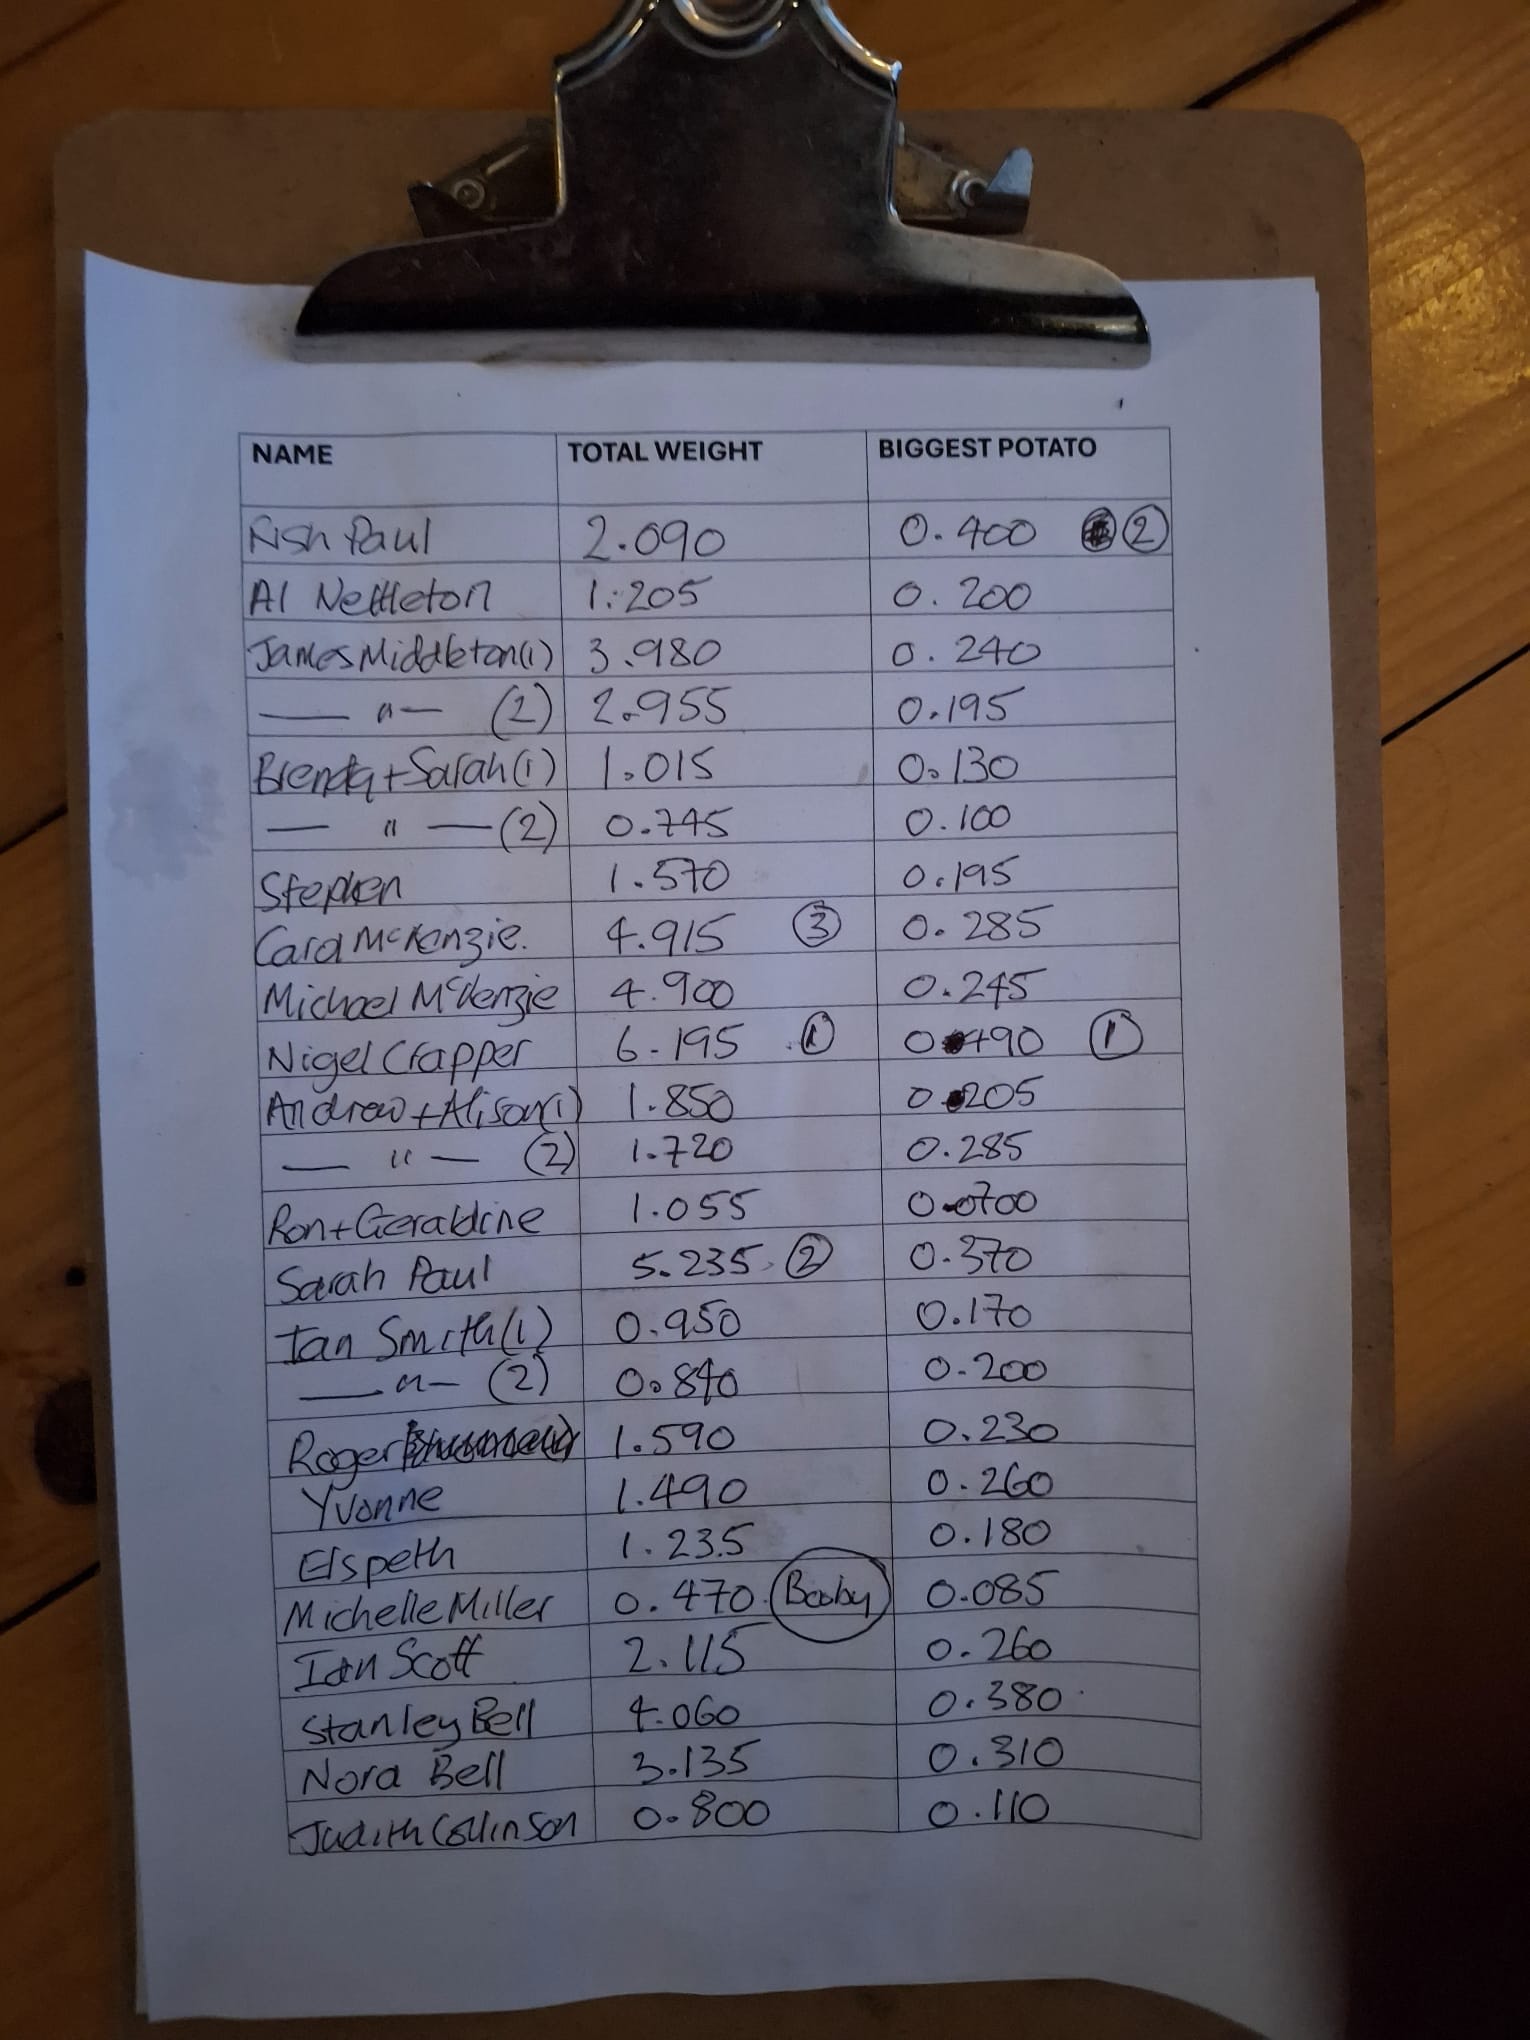 NAME TOTAL WEIGHT BIGGEST POTATO
Fish Paul 2.090 0.400 ②
Al Nettleton 1.205 0.200
James Middleton(1) 3.980 0.240
— " — (2) 2.955 0.195
Brenda+Sarah(1) 1.015 0.130
— " — (2) 0.745 0.100
Stephen 1.570 0.195
Cara McKenzie. 4.915 ③ 0.285
Michael McKenzie 4.900 0.245
Nigel Crapper 6.195 ① 0.490 ①
Andrew+Alison(1) 1.850 0.205
— " — (2) 1.720 0.285
Ron+Geraldine 1.055
Sarah Paul 5.235 ② 0.370
Ian Smith(1) 0.950 0.170
— " — (2) 0.840 0.200
Roger 1.590 0.230
Yvonne 1.490 0.260
Elspeth 1.235 0.180
Michelle Miller 0.470 Booby 0.085
Ian Scott 2.115 0.260
Stanley Bell 4.060 0.380
Nora Bell 3.135 0.310
Judith Collinson 0.800 0.110